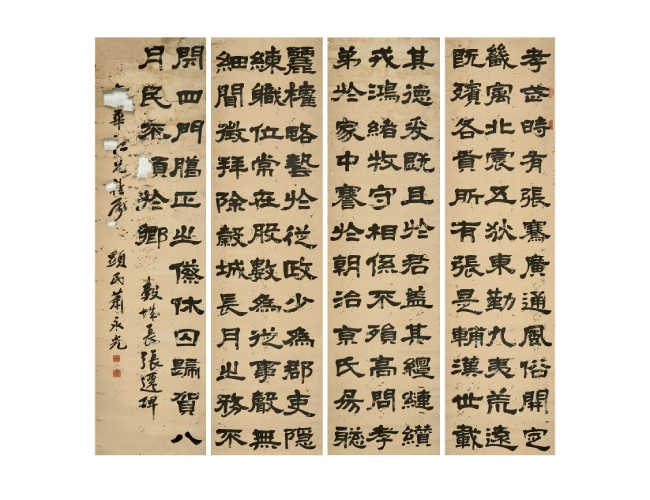 孝武時有張騫廣通風俗開定
畿寓北震五狄東勤九夷荒遠
既殯各貢所有張是輔漢世載
其德爰既且於君蓋其纏縺纘
戎鴻緒牧守相係不殞高問孝
弟於家中謇於朝治京氏易聰
麗權略藝於從政少為郡吏隱
練職位常在股數為從事聲無
細聞徵拜除穀城長月之務不
閉四門臘正之僚休囚歸賀八
月民不煩於鄉 穀城長張遷碑
華 兄雅屬 顯民蕭永光